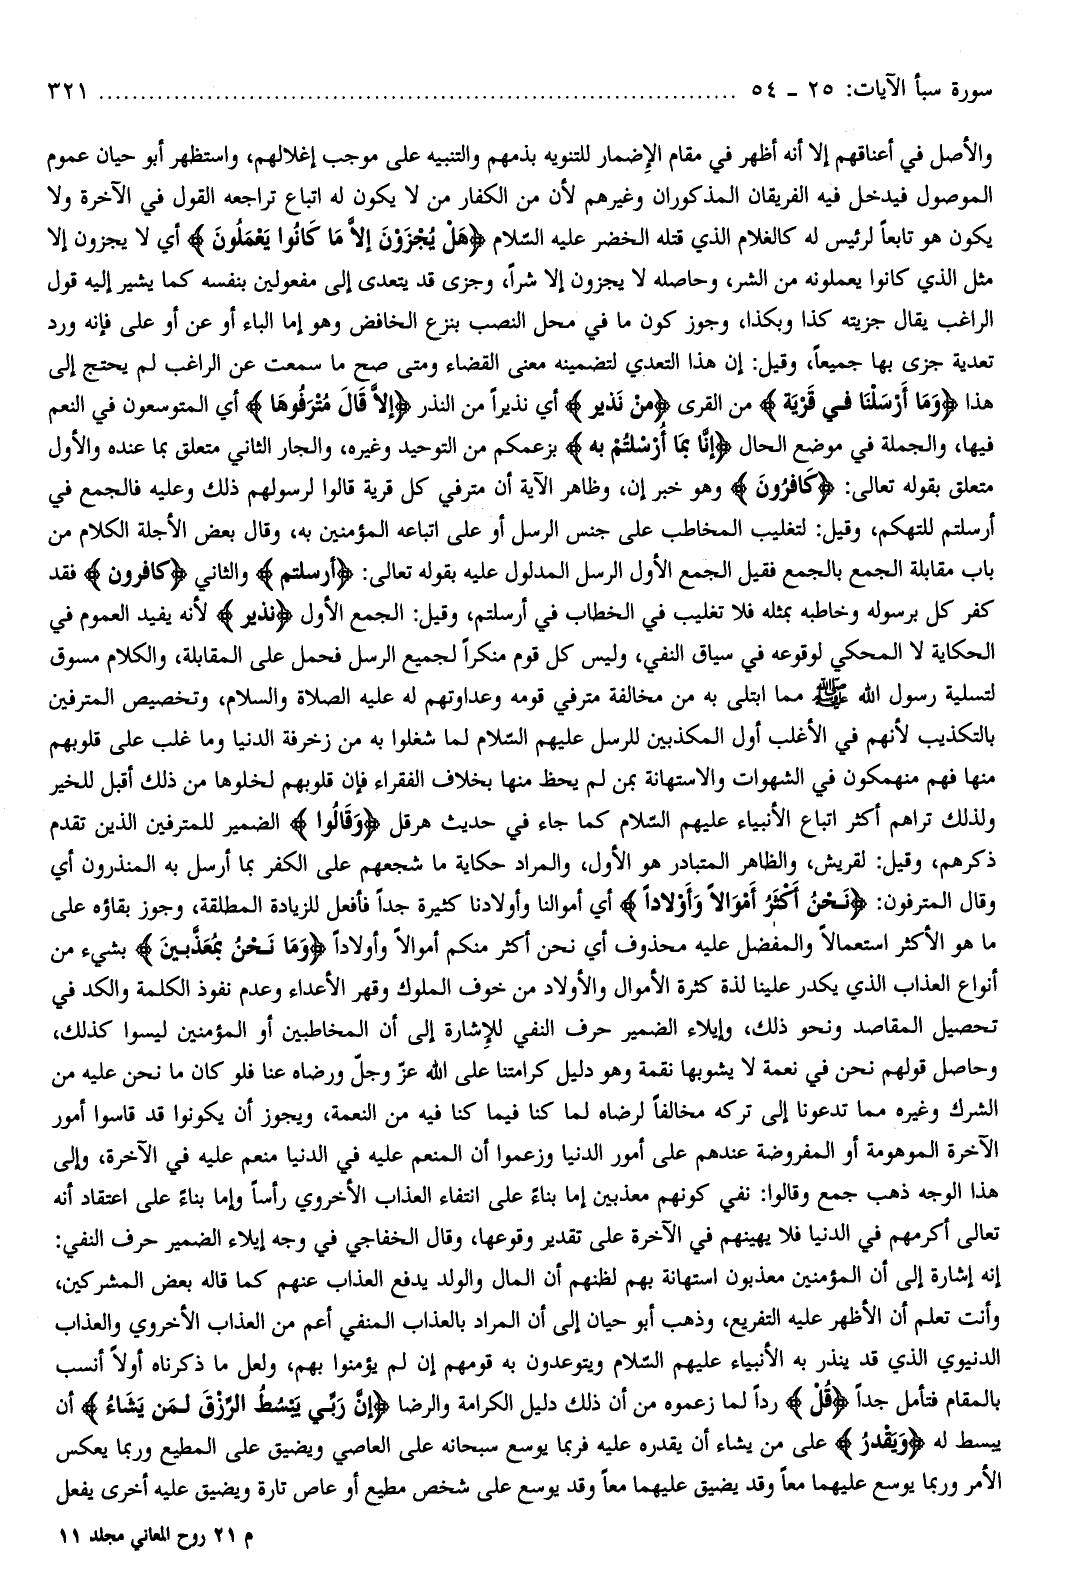 سورة سبأ الآيات: ٢٥ ـ ٥٤ ........................................................................... ٣٢١
والأصل في أعناقهم إلا أنه أظهر في مقام الإضمار للتنويه بذمهم والتنبيه على موجب إغلالهم، واستظهر أبو حيان عموم
الموصول فيدخل فيه الفريقان المذكوران وغيرهم لأن من الكفار من لا يكون له اتباع تراجعه القول في الآخرة ولا
يكون هو تابعاً لرئيس له كالغلام الذي قتله الخضر عليه السّلام ﴿هَلْ يُجْزَوْنَ إلاَّ مَا كَانُوا يَعْمَلُونَ﴾ أي لا يجزون إلا
مثل الذي كانوا يعملونه من الشر، وحاصله لا يجزون إلا شراً، وجزى قد يتعدى إلى مفعولين بنفسه كما يشير إليه قول
الراغب يقال جزيته كذا وبكذا، وجوز كون ما في محل النصب بنزع الخافض وهو إما الباء أو عن أو على فإنه ورد
تعدية جزى بها جميعاً، وقيل: إن هذا التعدي لتضمينه معنى القضاء ومتى صح ما سمعت عن الراغب لم يحتج إلى
هذا ﴿وَمَا أَرْسَلْنَا في قَرْيَة﴾ من القرى ﴿منْ نَذير﴾ أي نذيراً من النذر ﴿إلاَّ قَالَ مُتْرَفُوهَا﴾ أي المتوسعون في النعم
فيها، والجملة في موضع الحال ﴿إنَّا بمَا أُرْسلْتُمْ به﴾ بزعمكم من التوحيد وغيره، والجار الثاني متعلق بما عنده والأول
متعلق بقوله تعالى: ﴿كَافرُونَ﴾ وهو خبر إن، وظاهر الآية أن مترفي كل قرية قالوا لرسولهم ذلك وعليه فالجمع في
أرسلتم للتهكم، وقيل: لتغليب المخاطب على جنس الرسل أو على اتباعه المؤمنين به، وقال بعض الأجلة الكلام من
باب مقابلة الجمع بالجمع فقيل الجمع الأول الرسل المدلول عليه بقوله تعالى: ﴿أرسلتم﴾ والثاني ﴿كافرون﴾ فقد
كفر كل برسوله وخاطبه بمثله فلا تغليب في الخطاب في أرسلتم، وقيل: الجمع الأول ﴿نذير﴾ لأنه يفيد العموم في
الحكاية لا المحكي لوقوعه في سياق النفي، وليس كل قوم منكراً لجميع الرسل فحمل على المقابلة، والكلام مسوق
لتسلية رسول الله ﷺ مما ابتلى به من مخالفة مترفي قومه وعداوتهم له عليه الصلاة والسلام، وتخصيص المترفين
بالتكذيب لأنهم في الأغلب أول المكذبين للرسل عليهم السّلام لما شغلوا به من زخرفة الدنيا وما غلب على قلوبهم
منها فهم منهمكون في الشهوات والاستهانة بمن لم يحظ منها بخلاف الفقراء فإن قلوبهم لخلوها من ذلك أقبل للخير
ولذلك تراهم أكثر اتباع الأنبياء عليهم السّلام كما جاء في حديث هرقل ﴿وَقَالُوا﴾ الضمير للمترفين الذين تقدم
ذكرهم، وقيل: لقريش، والظاهر المتبادر هو الأول، والمراد حكاية ما شجعهم على الكفر بما أرسل به المنذرون أي
وقال المترفون: ﴿نَحْنُ أَكْثَرُ أَمْوَالاً وَأَوْلاداً﴾ أي أموالنا وأولادنا كثيرة جداً فأفعل للزيادة المطلقة، وجوز بقاؤه على
ما هو الأكثر استعمالاً والمفضل عليه محذوف أي نحن أكثر منكم أموالاً وأولاداً ﴿وَمَا نَحْنُ بمُعَذَّبينَ﴾ بشيء من
أنواع العذاب الذي يكدر علينا لذة كثرة الأموال والأولاد من خوف الملوك وقهر الأعداء وعدم نفوذ الكلمة والكد في
تحصيل المقاصد ونحو ذلك، وإيلاء الضمير حرف النفي للإشارة إلى أن المخاطبين أو المؤمنين ليسوا كذلك،
وحاصل قولهم نحن في نعمة لا يشوبها نقمة وهو دليل كرامتنا على الله عزّ وجلّ ورضاه عنا فلو كان ما نحن عليه من
الشرك وغيره مما تدعونا إلى تركه مخالفاً لرضاه لما كنا فيما كنا فيه من النعمة، ويجوز أن يكونوا قد قاسوا أمور
الآخرة الموهومة أو المفروضة عندهم على أمور الدنيا وزعموا أن المنعم عليه في الدنيا منعم عليه في الآخرة، وإلى
هذا الوجه ذهب جمع وقالوا: نفي كونهم معذبين إما بناءً على انتفاء العذاب الأخروي رأساً وإما بناءً على اعتقاد أنه
تعالى أكرمهم في الدنيا فلا يهينهم في الآخرة على تقدير وقوعها، وقال الخفاجي في وجه إيلاء الضمير حرف النفي:
إنه إشارة إلى أن المؤمنين معذبون استهانة بهم لظنهم أن المال والولد يدفع العذاب عنهم كما قاله بعض المشركين،
وأنت تعلم أن الأظهر عليه التفريع، وذهب أبو حيان إلى أن المراد بالعذاب المنفي أعم من العذاب الأخروي والعذاب
الدنيوي الذي قد ينذر به الأنبياء عليهم السّلام ويتوعدون به قومهم إن لم يؤمنوا بهم، ولعل ما ذكرناه أولاً أنسب
بالمقام فتأمل جداً ﴿قُلْ﴾ رداً لما زعموه من أن ذلك دليل الكرامة والرضا ﴿إنَّ رَبِّي يَبْسُطُ الرِّزْقَ لمَن يَشَاءُ﴾ أن
يبسط له ﴿وَيَقْدرُ﴾ على من يشاء أن يقدره عليه فربما يوسع سبحانه على العاصي ويضيق على المطيع وربما يعكس
الأمر وربما يوسع عليهما معاً وقد يضيق عليهما معاً وقد يوسع على شخص مطيع أو عاص تارة ويضيق عليه أخرى يفعل
م ٢١ روح المعاني مجلد ١١